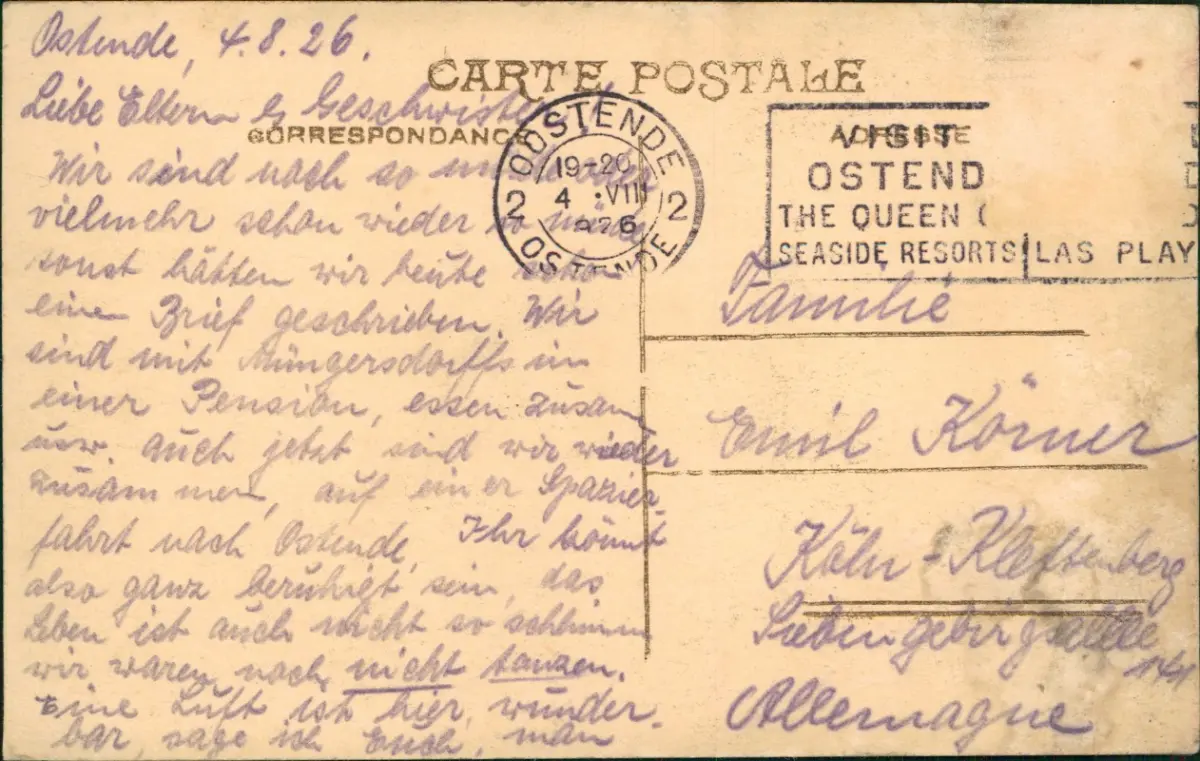 Ostende, 4.8.26.
CARTE POSTALE
CORRESPONDANCE
ADRESSE
Liebe Eltern & Geschwister
Wir sind noch so
vielmehr schon wieder so müde
sonst hätten wir heute schon
einen Brief geschrieben. Wir
sind mit Müngersdorffs in
einer Pension, essen zusam
usw. auch jetzt sind wir wieder
zusammen, auf einer Spazier-
fahrt nach Ostende. Ihr könnt
also ganz beruhigt sein, das
Leben ist auch nicht so schlimm
wir waren noch nicht tanzen.
Eine Luft ist hier, wunder-
bar, sage ich Euch, man
OOSTENDE
19-20
2 4 VIII 2
1926
OSTENDE
VISIT
OSTEND
THE QUEEN
SEASIDE RESORTS LAS PLAY
Familie
Emil Körner
Köln-Klettenberg
Siebengebirgsallee
Allemagne